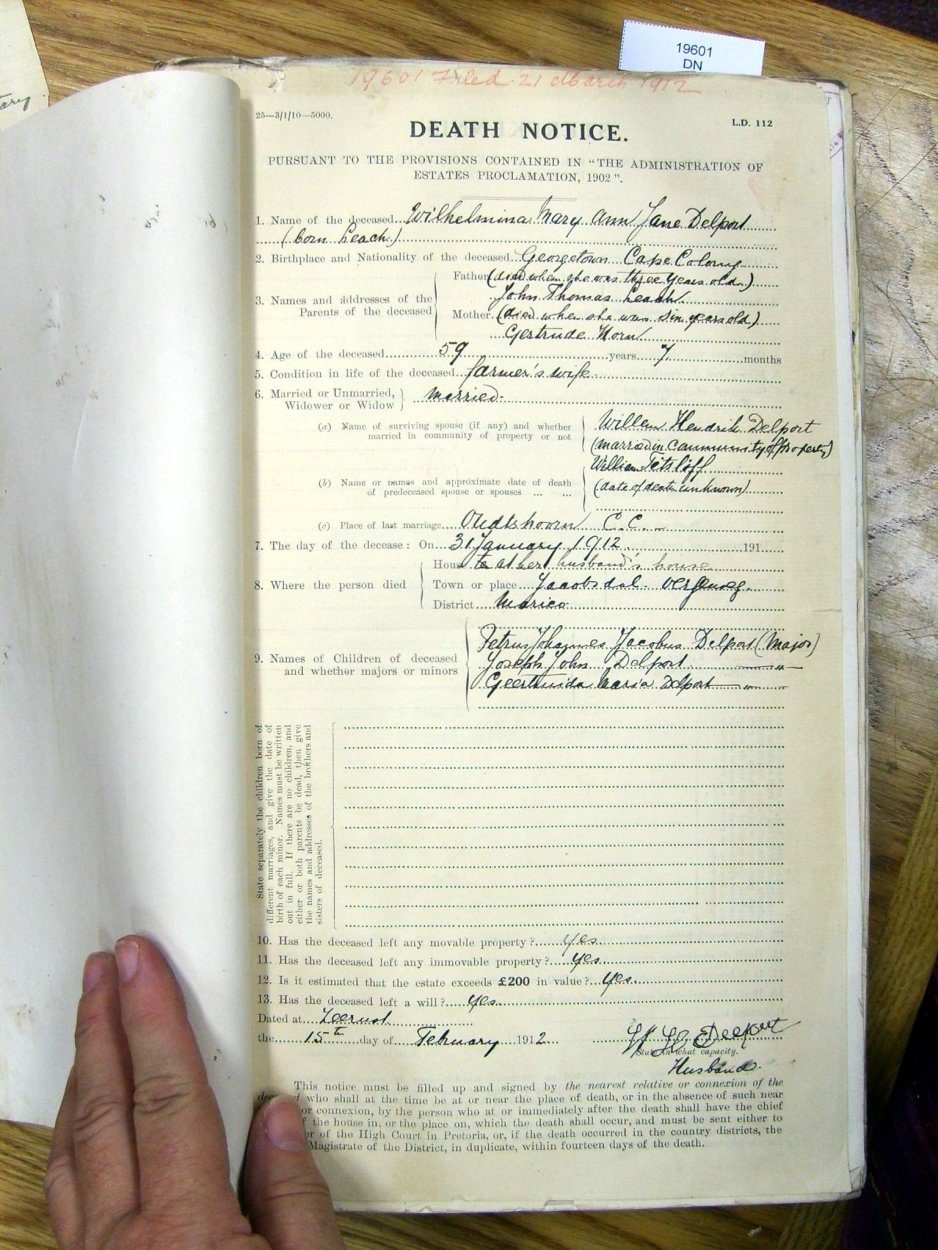 19601
DN
19601 Filed 21 March 1912
25—3/1/10—5000.
L.D. 112
DEATH NOTICE.
PURSUANT TO THE PROVISIONS CONTAINED IN "THE ADMINISTRATION OF
ESTATES PROCLAMATION, 1902".
1. Name of the deceased Wilhelmina Mary Ann Jane Delport
(born Leach)
2. Birthplace and Nationality of the deceased Georgetown Cape Colony
3. Names and addresses of the Parents of the deceased
Father (died when she was three years old.)
John Thomas Leach
Mother (died when she was six years old)
Gertrude Horn
4. Age of the deceased 59 years 7 months
5. Condition in life of the deceased farmer's wife
6. Married or Unmarried, Widower or Widow } married.
(a) Name of surviving spouse (if any) and whether
married in community of property or not
Willem Hendrik Delport
(married in Community of Property)
(b) Name or names and approximate date of death
of predeceased spouse or spouses ... ...
William
(date of death unknown)
(c) Place of last marriage Oudtshoorn C.C.
7. The day of the decease: On 31 January 1912 191
8. Where the person died
House at her husband's house
Town or place Jacobsdal Vergenoeg
District Marico
9. Names of Children of deceased
and whether majors or minors
Petrus Johannes Jacobus Delport (Major)
Joseph John Delport — " —
Geertruida Maria Delport — " —
State separately the children born of
different marriages, and give the date of
birth of each minor. Names must be written
out in full. If there are no children, and
either or both parents be dead, then give
the names and addresses of the brothers and
sisters of deceased.
10. Has the deceased left any movable property? Yes
11. Has the deceased left any immovable property? Yes
12. Is it estimated that the estate exceeds £200 in value? Yes.
13. Has the deceased left a will? Yes
Dated at Zeerust
the 15th day of February 1912
Delport
State in what capacity.
Husband.
This notice must be filled up and signed by the nearest relative or connexion of the
who shall at the time be at or near the place of death, or in the absence of such near
or connexion, by the person who at or immediately after the death shall have the chief
the house in, or the place on, which the death shall occur, and must be sent either to
of the High Court in Pretoria, or, if the death occurred in the country districts, the
Magistrate of the District, in duplicate, within fourteen days of the death.